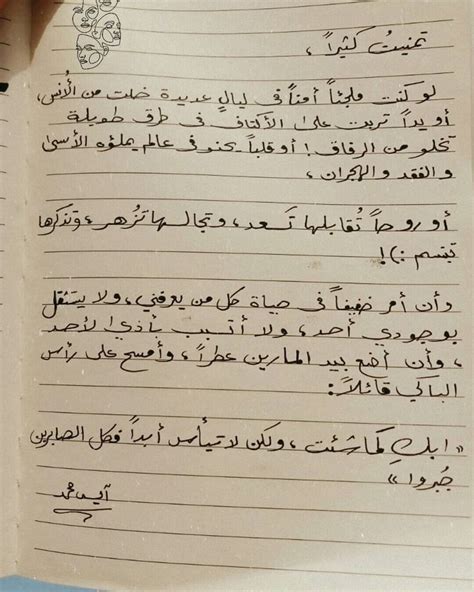 تمنيتُ كثيراً ،
لو كنت ملجئاً أمناً في ليالٍ عديدة خلت من الأُنس،
أو يداً تربت على الأكتاف في طرق طويلة
تخلو من الرفاق! أو قلباً يحنو في عالم يملؤه الأسىٰ
والفقد والهجران ،
أو روحاً تُقابلها تَسعد ، وتجالسها تزُهر ، وتذكرها
تبتسم :)!
وأن أمر خفيفاً في حياة كل من يعرفني ، ولا يستثقل
بوجودي أحد ، ولا أتسبب بأذىٰ لأحد
، وأن أضع بيد المارين عطراً ، وأمسح على رأس
الباكي قائلاً :
« ابكِ كما شئت ، ولكن لا تيأس أبداً فكل الصابرين
جُبروا »
محمد